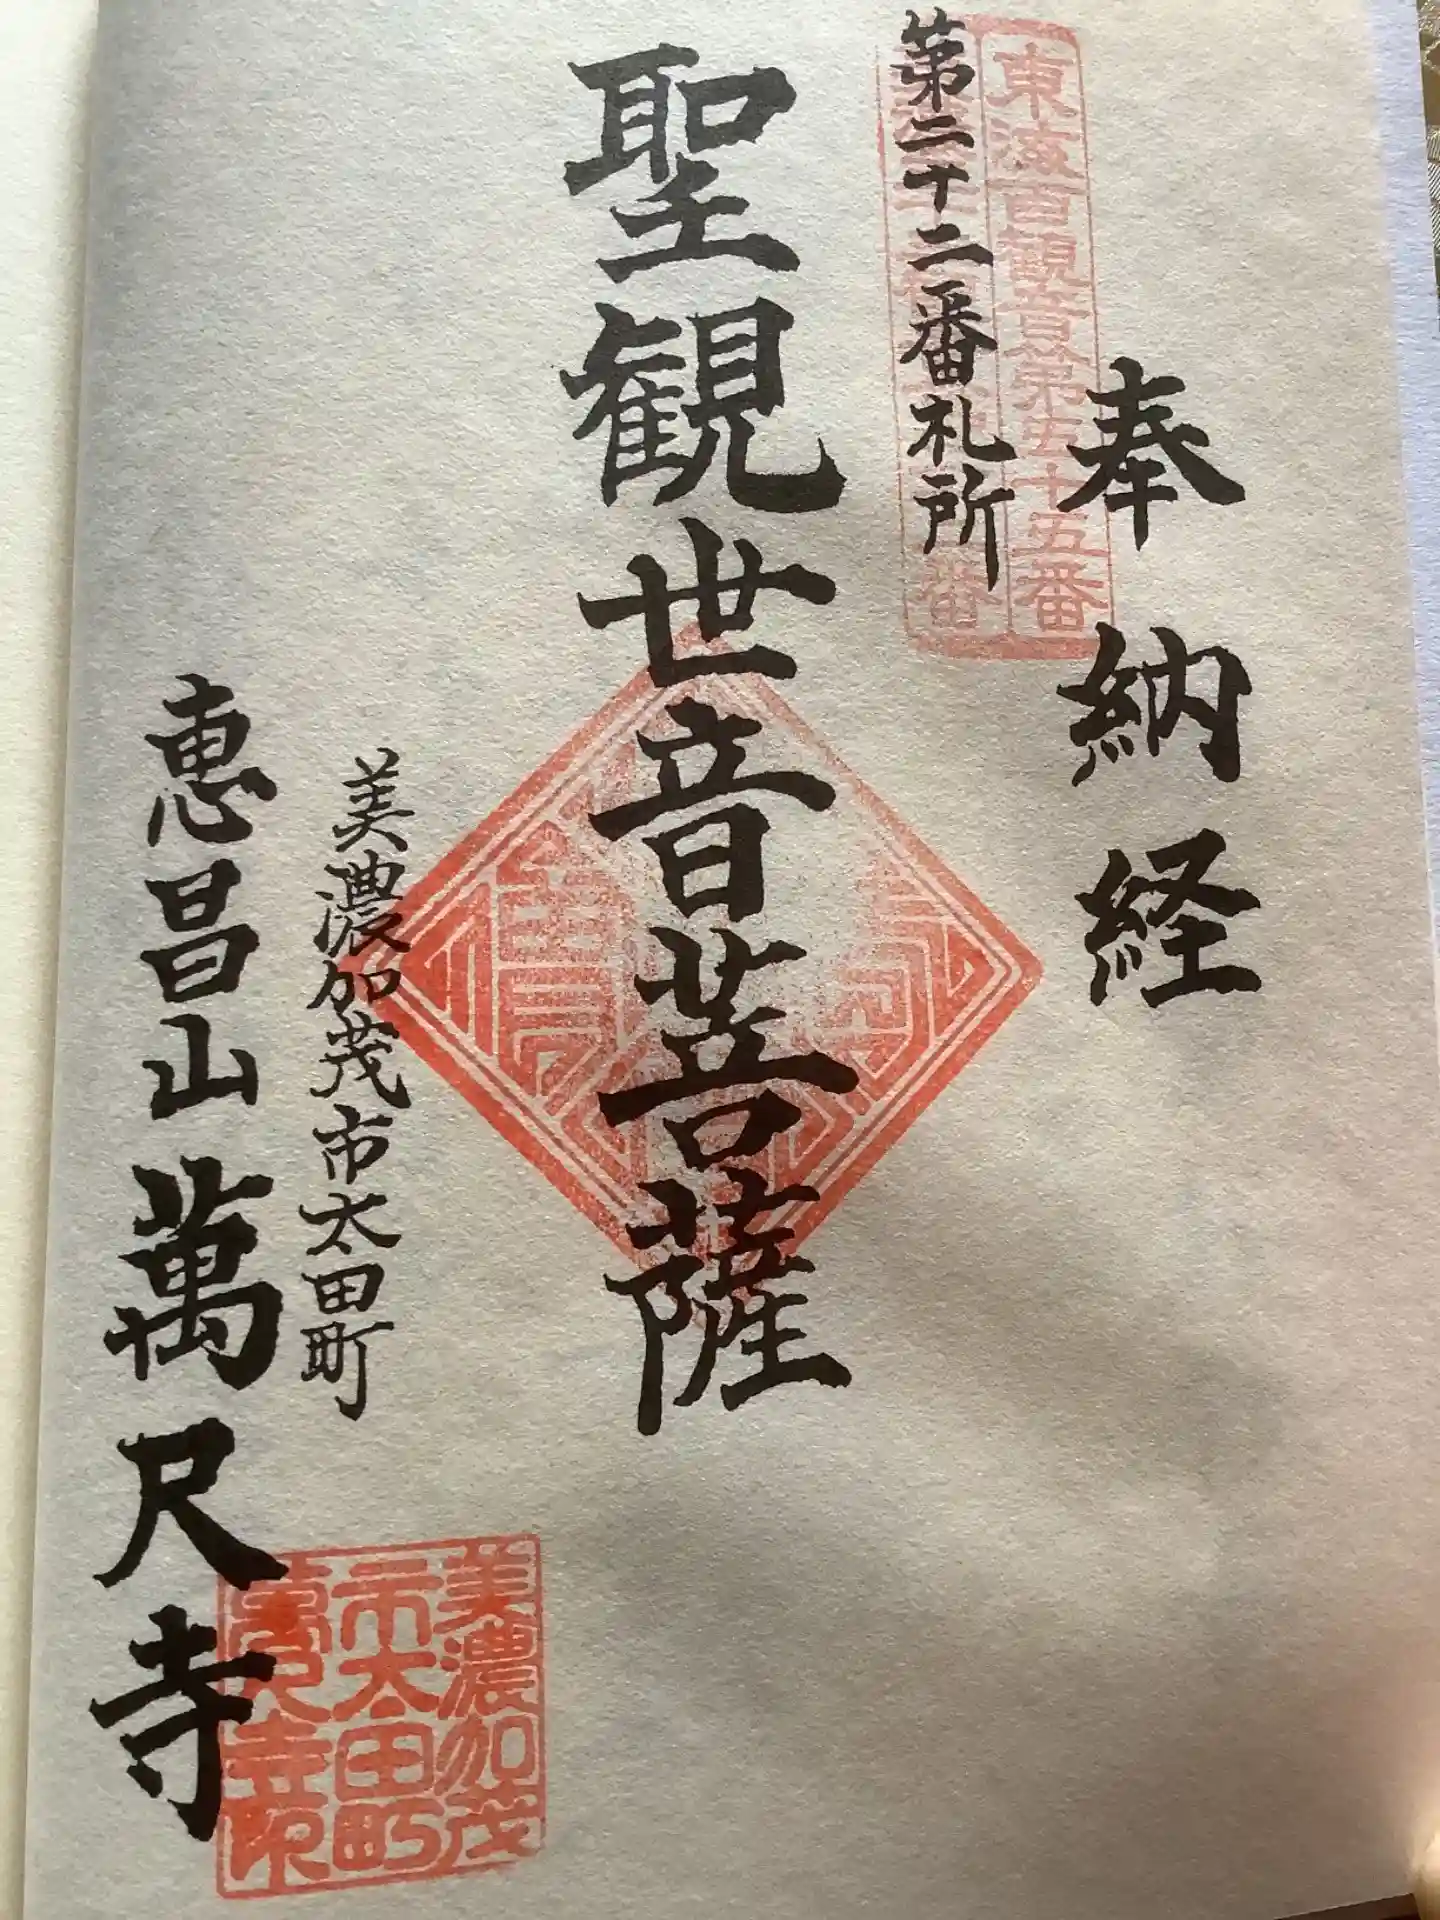 奉納経
東海百観音第五十五番
第二十二番札所
聖観世音菩薩
美濃加茂市太田町
恵昌山萬尺寺
美濃加茂
市太田町
萬尺寺印